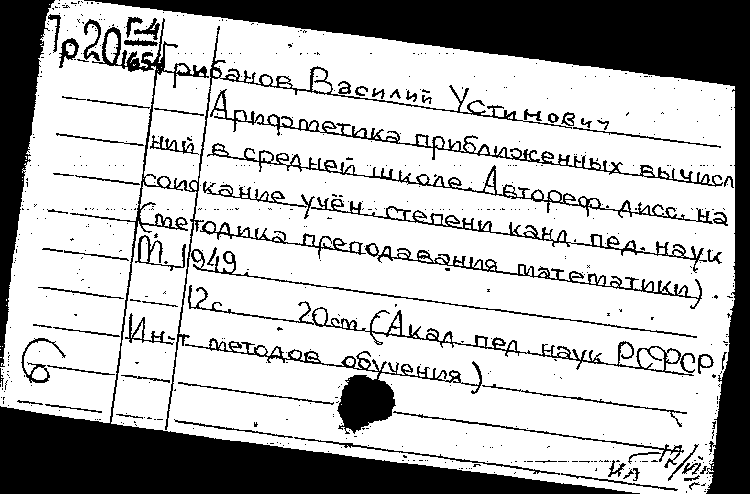 Пр20 Г-4
1654
Грибанов, Василий Устинович
Арифметика приближенных вычисл
ний в средней школе. Автореф. дисс. на
соискание учён. степени канд. пед. наук
(методика преподавания математики).
М., 1949.
12 с. 20 см. (Акад. пед. наук РСФСР.
Ин-т методов обучения).
б